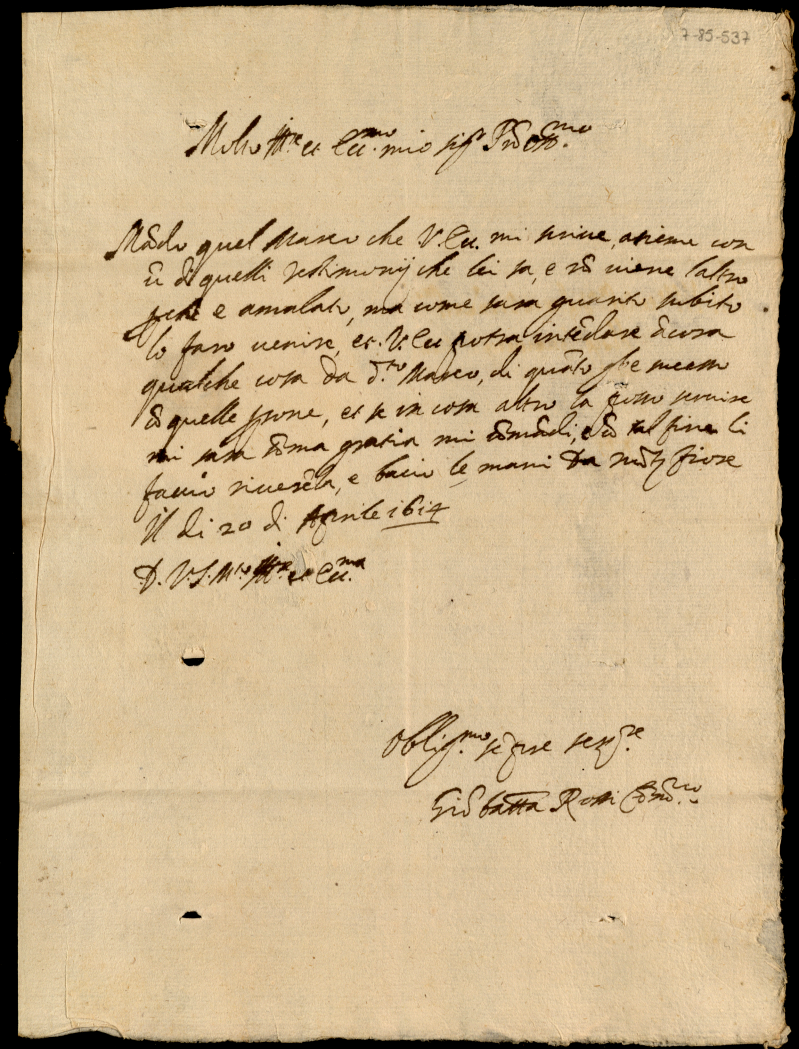 7-85-537
Molto Ill.re et Ecc.mo mio sig.r P̃ro oss.mo
Mãdo quel Marco che V. Ecc. mi scrive, asieme con
ũ di quelli testimonij che lei sa, e nõ viene l'altro
perche e amalato, ma come sara guarito subito
lo faro venire, et V. Ecc. potra intẽdere ãcora
qualche cosa da d.to Marco, di quãto
cõ quelle psone, et se in cosa altro la posso servire
mi sara sõma gratia mi comãdi, e cõ tal fine li
faccio riverẽla, e bacio le mani Da fiore
il di 20 di Aprile 1614
D. V. S. M.to Ill.re et Ecc.ma
Oblig.mo sẽpre ser.re
Giõ batta Rossi